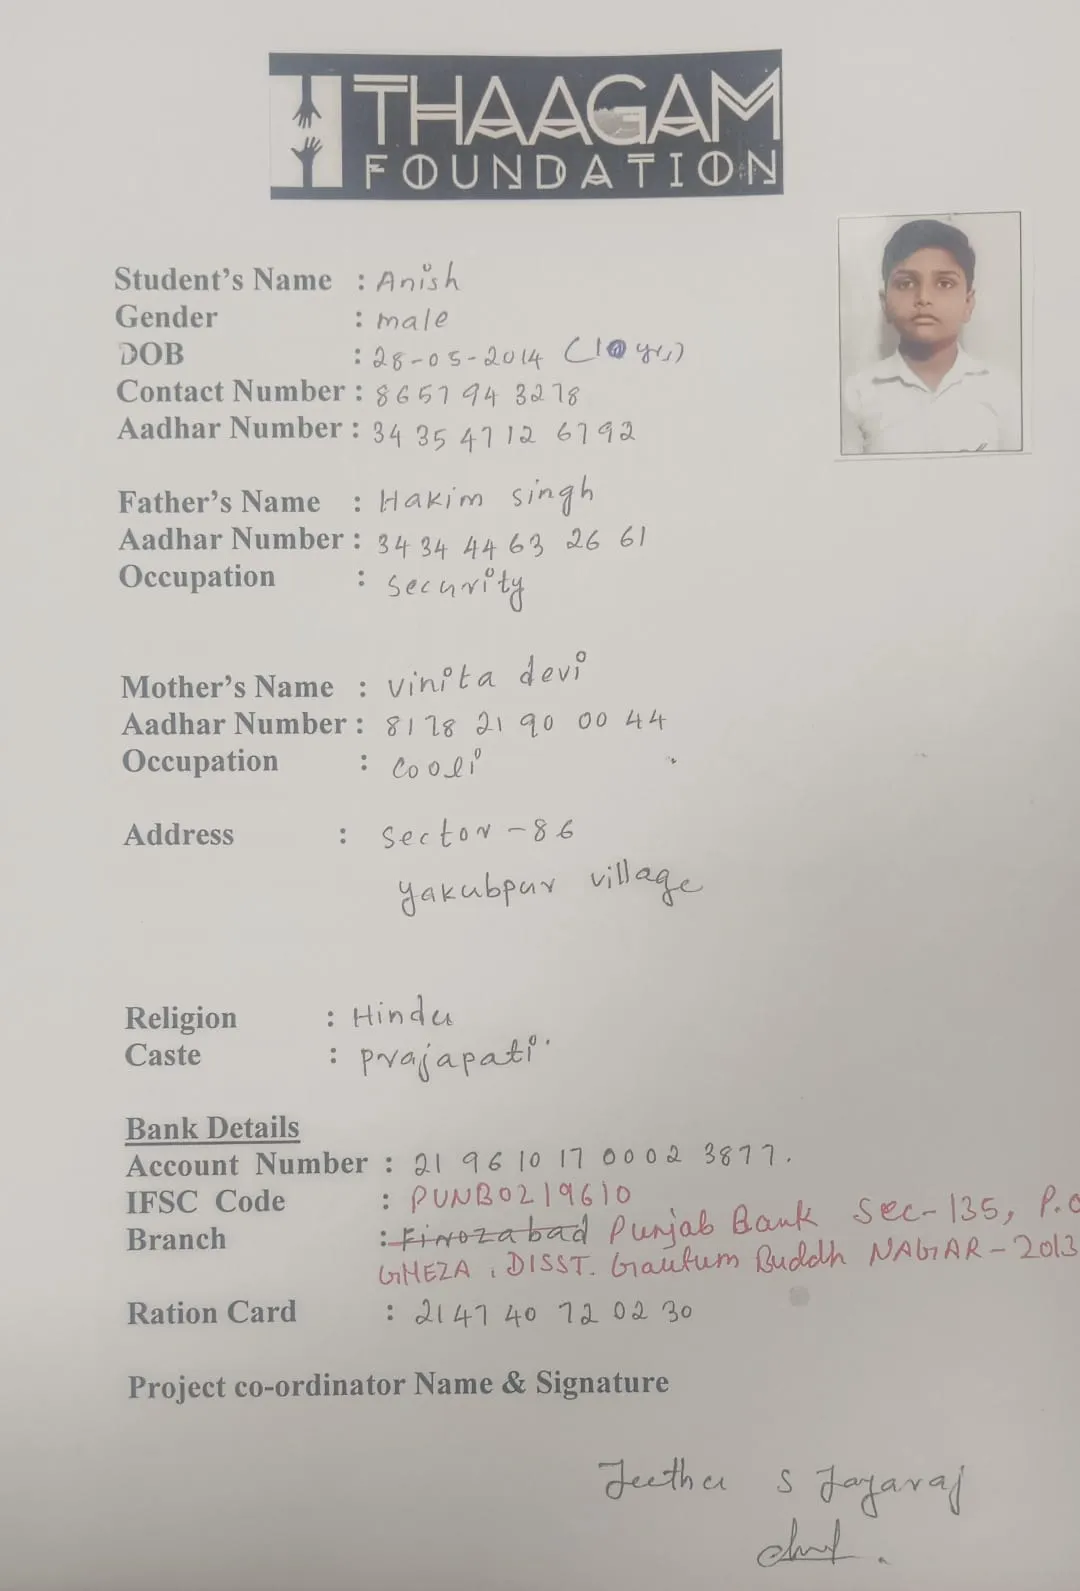 THAAGAM
FOUNDATION
Student's Name : Anish
Gender : male
DOB : 28-05-2014 (10 yrs)
Contact Number : 8657 94 3278
Aadhar Number : 34 35 47 12 6792
Father's Name : Hakim singh
Aadhar Number : 34 34 44 63 26 61
Occupation : security
Mother's Name : vinita devi
Aadhar Number : 8178 21 90 00 44
Occupation : cooli
Address : sector - 86
yakubpur village
Religion : Hindu
Caste : prajapati
Bank Details
Account Number : 21 96 10 17 0002 3877.
IFSC Code : PUNB0219610
Branch : Firozabad Punjab Bank Sec-135, P.O
GHEZA, DISST. Grautum Buddh NAGAR - 2013
Ration Card : 2147 40 72 02 30
Project co-ordinator Name & Signature
Jeetha S Jayaraj